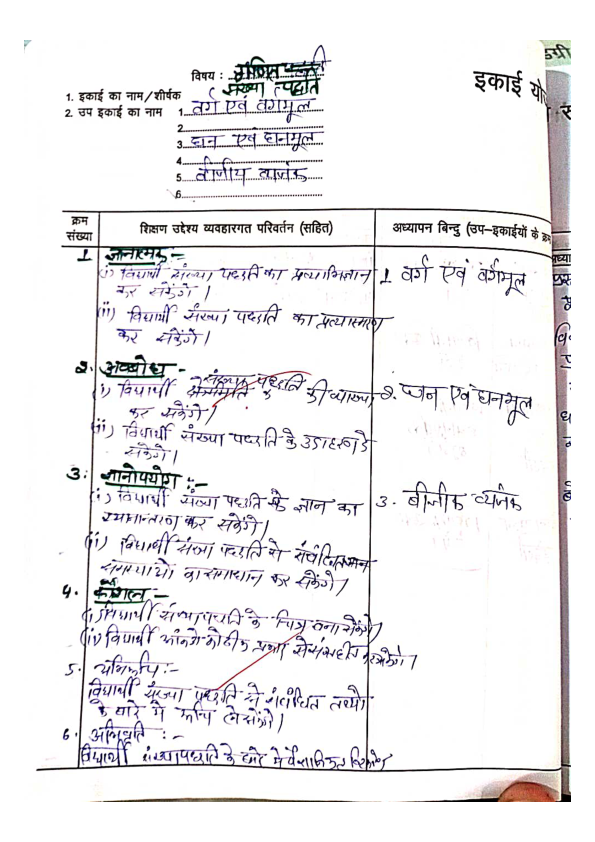 विषय : गणित
इकाई यो
1. इकाई का नाम/शीर्षक संख्या पद्धति
2. उप इकाई का नाम 1. वर्ग एवं वर्गमूल
2.
3. घन एवं घनमूल
4.
5. बीजीय व्यंजक
6.
क्रम संख्या
शिक्षण उद्देश्य व्यवहारगत परिवर्तन (सहित)
अध्यापन बिन्दु (उप-इकाईयों के क्रम
1 ज्ञानात्मक :-
(i) विद्यार्थी संख्या पद्धति का प्रत्याभिज्ञान
कर सकेंगे।
1 वर्ग एवं वर्गमूल
(ii) विद्यार्थी संख्या पद्धति का प्रत्यास्मरण
कर सकेंगे।
2. अवबोध -
(i) विद्यार्थी संख्या पद्धति की व्याख्या
कर सकेंगे।
2. घन एवं घनमूल
(ii) विद्यार्थी संख्या पद्धति के उदाहरण दे
सकेंगे।
3. ज्ञानोपयोग :-
(i) विद्यार्थी संख्या पद्धति के ज्ञान का
कर सकेंगे।
3. बीजीक व्यंजक
(ii) विद्यार्थी संख्या पद्धति से संबंधित
समस्याओं का समाधान कर सकेंगे।
4. कौशल -
(i) विद्यार्थी संख्या पद्धति के चित्र बना सकेंगे।
(ii) विद्यार्थी आंकड़ो को ठीक प्रकार से
5. अभिरूचि :-
विद्यार्थी संख्या पद्धति से संबंधित तथ्यो
के बारे में रूचि ले सकेंगे।
6. अभिवृति :-
विद्यार्थी संख्या पद्धति के बारे में